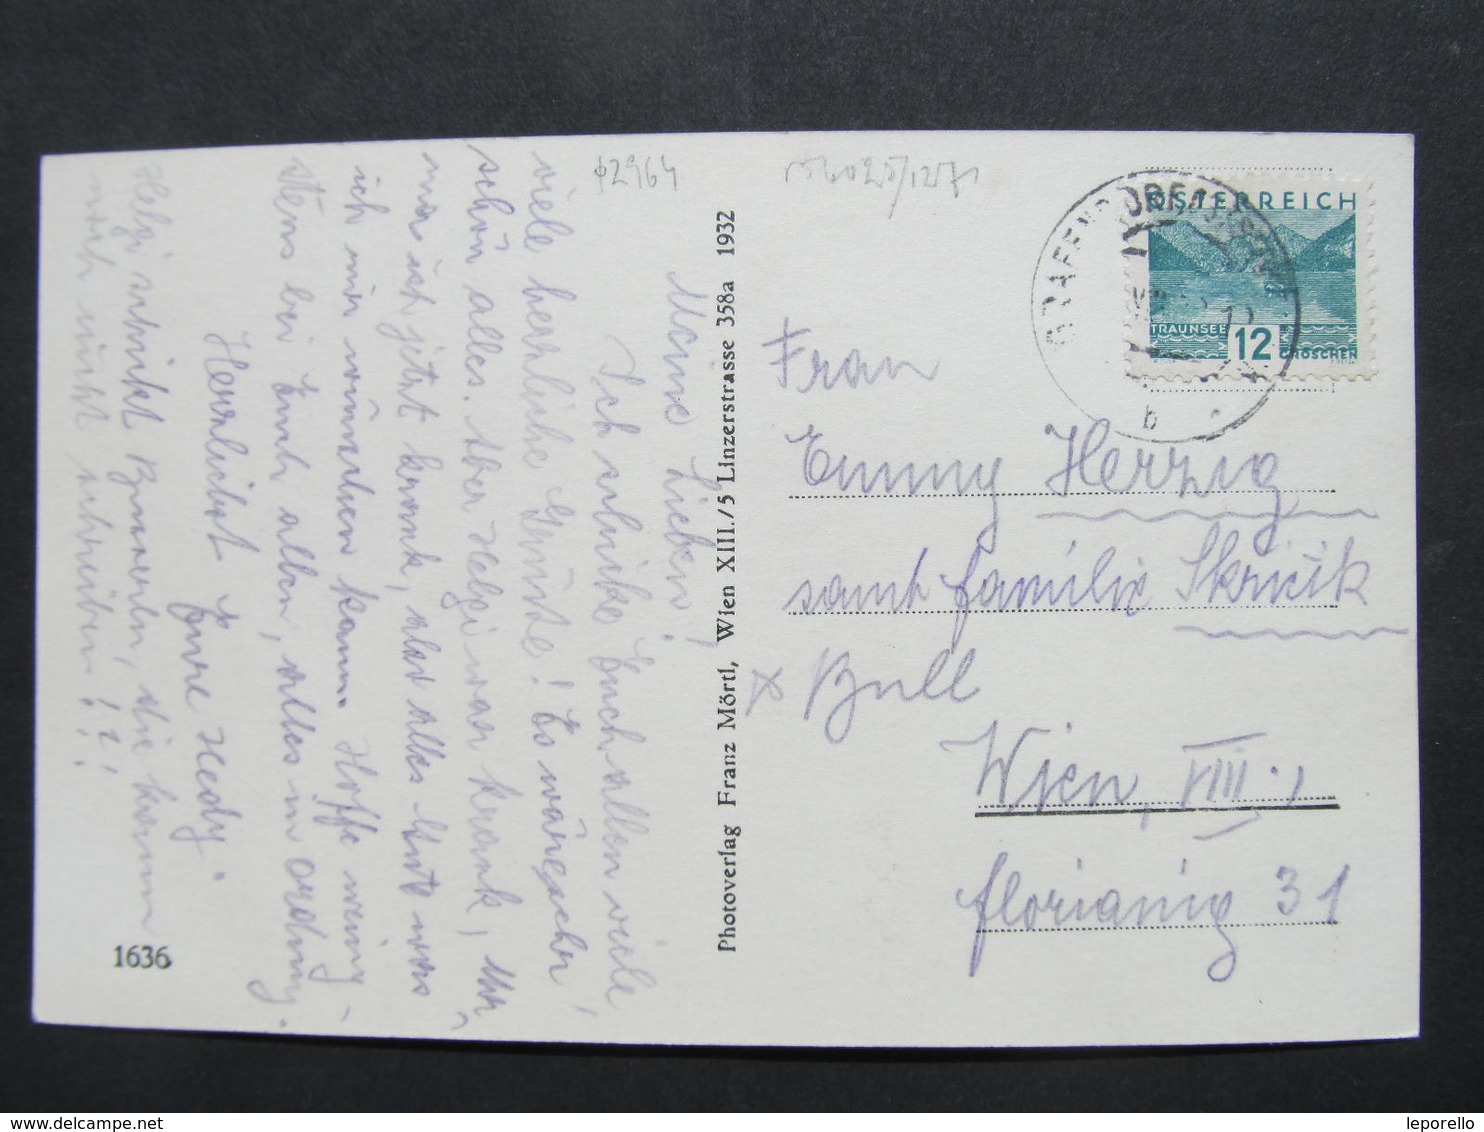 Meine Lieben!
Ich schicke Euch allen viele
viele herzliche Grüsse! Es wäre schon
schön alles. Aber Helgi war krank,
war ich jetzt krank, aber alles tut was
ich mir wünschen kann. Hoffe wenig-
stens bei Euch allen, alles in Ordnung.
Herzlichst Eure Hedy
Helgi schickt Busserln, sie kann
noch nicht schreiben!?!
φ2964
1636
Photoverlag Franz Mörtl, Wien XIII./5 Linzerstrasse 358a 1932
ÖSTERREICH
TRAUNSEE
12
GROSCHEN
GRAFENDORF
b
Frau
Emmy Herzig
samt Familie Skricik
Bull
Wien, VIII.,
Florianig 31
leporello